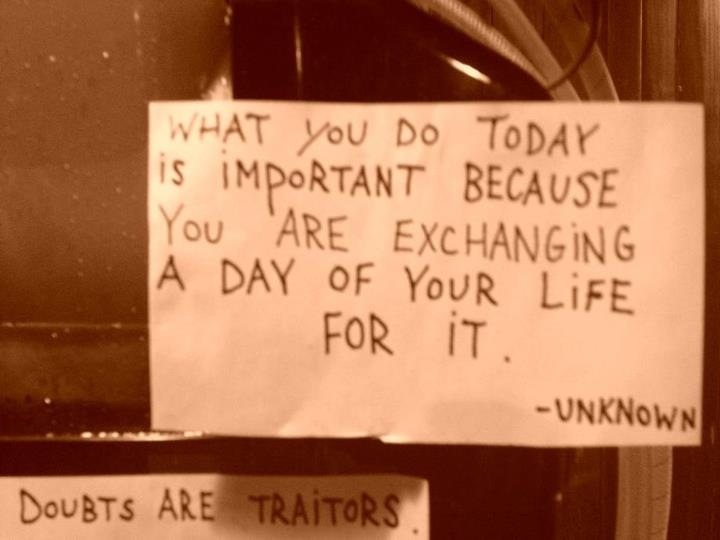 WHAT YOU DO TODAY
iS iMPORTANT BECAUSE
YOU ARE EXCHANGiNG
A DAY OF YOUR LiFE
FOR iT.
-UNKNOWN
DOUBTS ARE TRAiTORS.